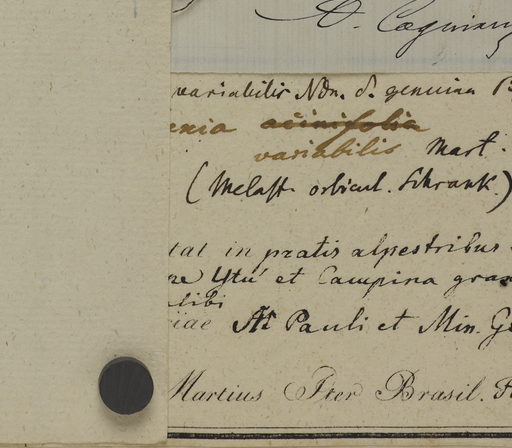 A. Cogniaux
variabilis Ndn. δ. genuina
enia acinifolia
variabilis Mart.
(Melast. orbicul. Schrank.)
tat in pratis alpestribus
re Ytú et Campina gran
alibi
iae St Pauli et Min. Ge
Martius Iter Brasil.